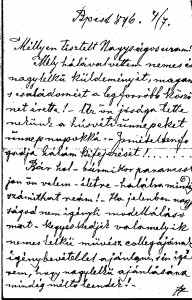 Bpest 846. 7/7.
Mélyen tisztelt Nagyságos uram!
Mély hálával vettem nemes és
nagylelkű küldeményét, magam
s családom a legforróbb köszö
netért! Az ön jósága tette
nekünk a húsvéti ünnepeket
ünnepnapokká. Ismételten fo
gadja hálám kifejezését!
Bár hol - bármikor parancsol
jon ön velem - életre - halálra
számíthat reám! Ha jelenben nagy
ságod nem igényli
mat. Kegyeskedjék valamelyik
nemes lelkű művész collegájának
igénybevételre ajánlani. Igé
rem, hogy nagylelkű ajánlására
mindig méltó leendek!